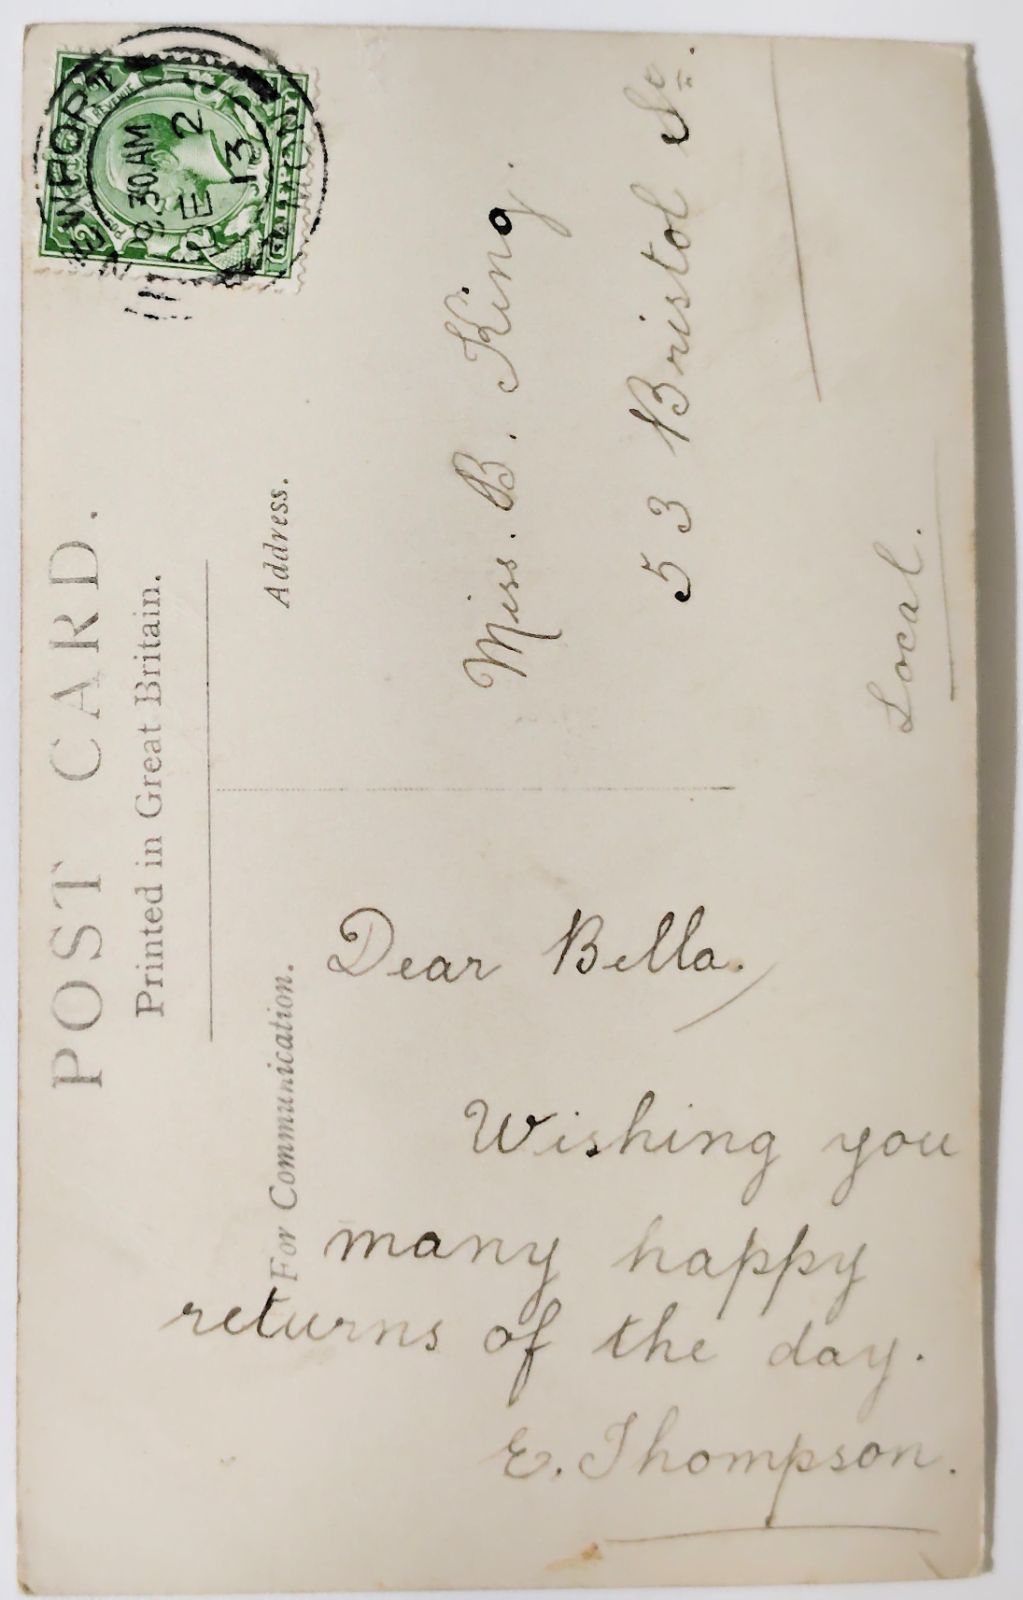 POST CARD.
Printed in Great Britain.
For Communication.
Address.
NEWPORT
8.30 AM
DE 2
13
Miss. B. King.
53 Bristol St.
Local.
Dear Bella.
Wishing you
many happy
returns of the day.
E. Thompson.